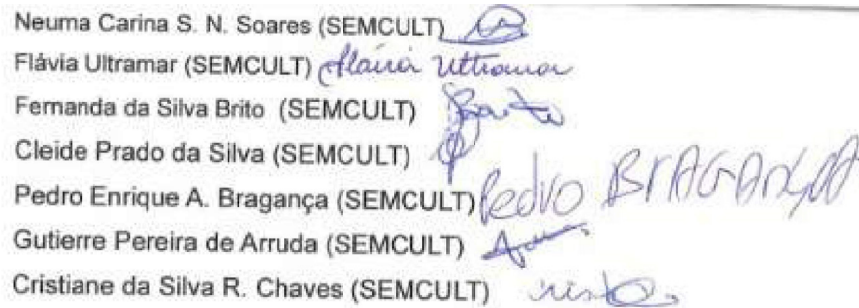 Neuma Carina S. N. Soares (SEMCULT)
Flávia Ultramar (SEMCULT) Flávia Ultramar
Fernanda da Silva Brito (SEMCULT) Brito
Cleide Prado da Silva (SEMCULT)
Pedro Enrique A. Bragança (SEMCULT) Pedro BrAGAnçA
Gutierre Pereira de Arruda (SEMCULT)
Cristiane da Silva R. Chaves (SEMCULT)